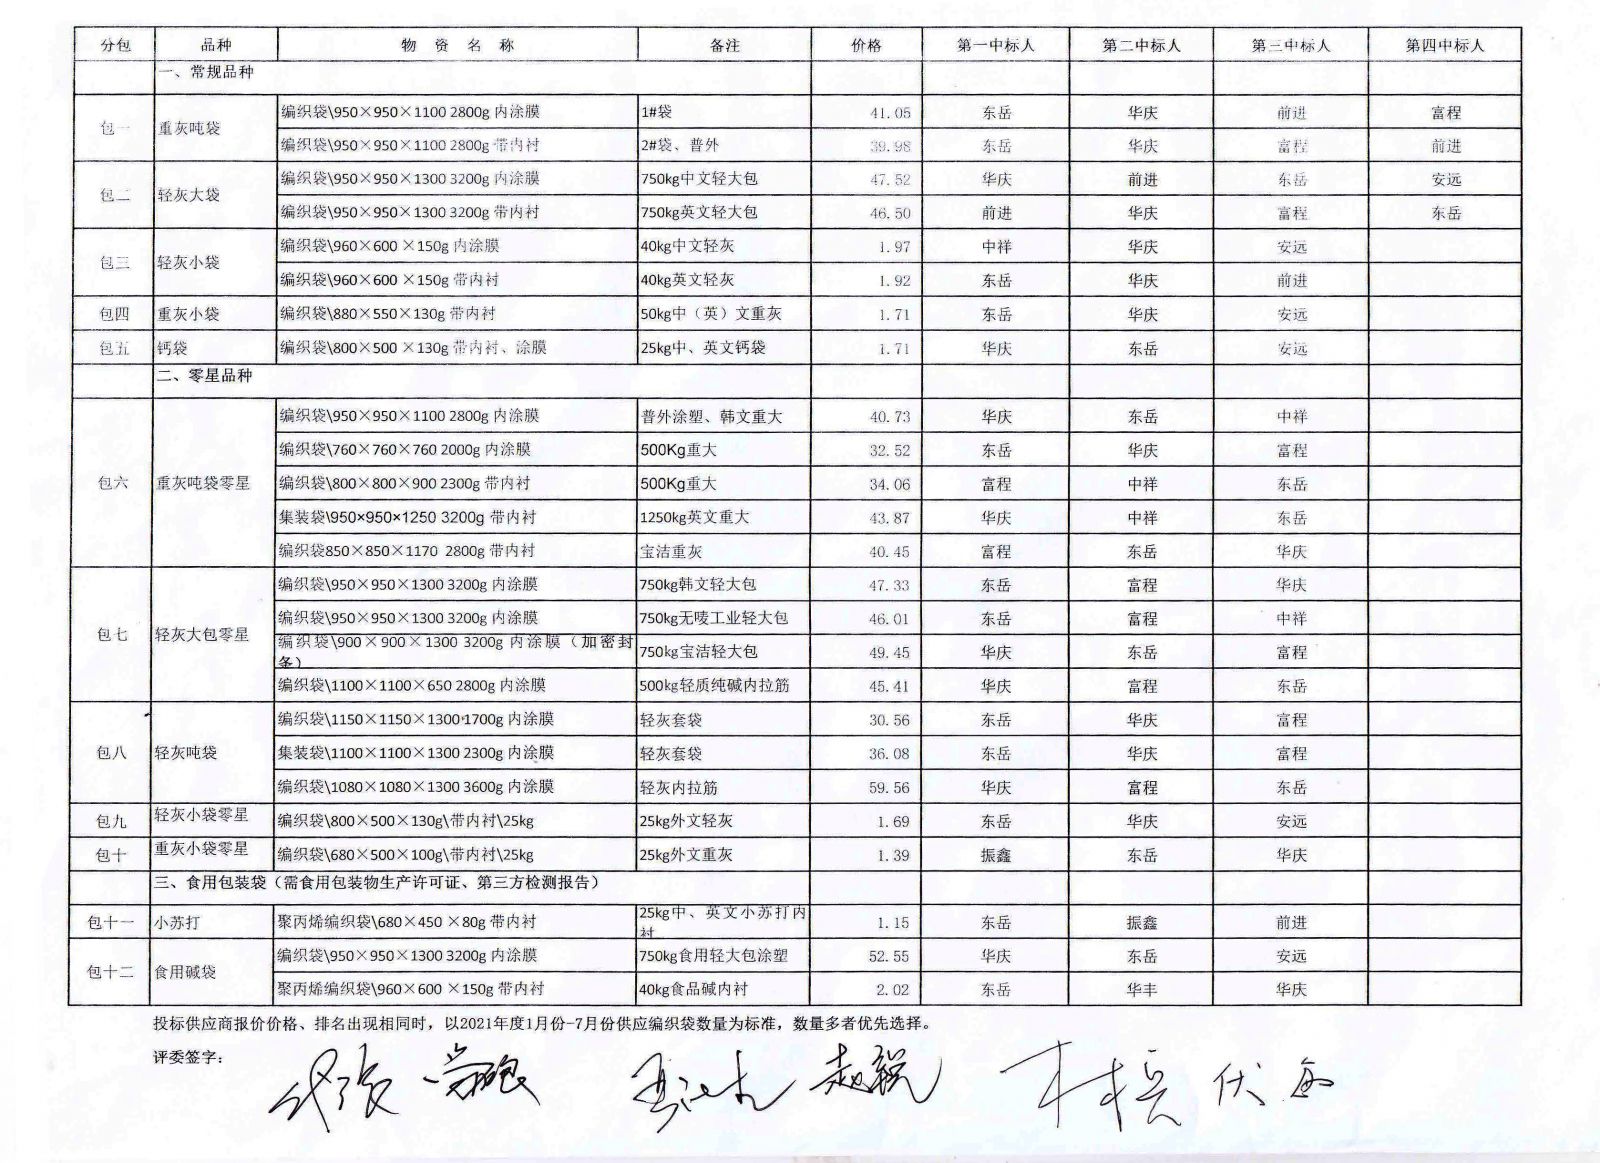 分包 品种 物 资 名 称 备注 价格 第一中标人 第二中标人 第三中标人 第四中标人
一、常规品种
包一 重灰吨袋 编织袋\950×950×1100 2800g 内涂膜 1#袋 41.05 东岳 华庆 前进 富程
编织袋\950×950×1100 2800g 带内衬 2#袋、普外 39.98 东岳 华庆 富程 前进
包二 轻灰大袋 编织袋\950×950×1300 3200g 内涂膜 750kg中文轻大包 47.52 华庆 前进 东岳 安远
编织袋\950×950×1300 3200g 带内衬 750kg英文轻大包 46.50 前进 华庆 富程 东岳
包三 轻灰小袋 编织袋\960×600 ×150g 内涂膜 40kg中文轻灰 1.97 中祥 华庆 安远
编织袋\960×600 ×150g 带内衬 40kg英文轻灰 1.92 东岳 华庆 前进
包四 重灰小袋 编织袋\880×550×130g 带内衬 50kg中（英）文重灰 1.71 东岳 华庆 安远
包五 钙袋 编织袋\800×500 ×130g 带内衬、涂膜 25kg中、英文钙袋 1.71 华庆 东岳 安远
二、零星品种
包六 重灰吨袋零星 编织袋\950×950×1100 2800g 内涂膜 普外涂塑、韩文重大 40.73 华庆 东岳 中祥
编织袋\760×760×760 2000g 内涂膜 500Kg重大 32.52 东岳 华庆 富程
编织袋\800×800×900 2300g 带内衬 500Kg重大 34.06 富程 中祥 东岳
集装袋\950×950×1250 3200g 带内衬 1250kg英文重大 43.87 华庆 中祥 东岳
编织袋850×850×1170 2800g 带内衬 宝洁重灰 40.45 富程 东岳 华庆
包七 轻灰大包零星 编织袋\950×950×1300 3200g 内涂膜 750kg韩文轻大包 47.33 东岳 富程 华庆
编织袋\950×950×1300 3200g 内涂膜 750kg无唛工业轻大包 46.01 东岳 富程 中祥
编织袋\900×900×1300 3200g 内涂膜（加密封条） 750kg宝洁轻大包 49.45 华庆 东岳 富程
编织袋\1100×1100×650 2800g 内涂膜 500kg轻质纯碱内拉筋 45.41 华庆 富程 东岳
包八 轻灰吨袋 编织袋\1150×1150×1300*1700g 内涂膜 轻灰套袋 30.56 东岳 华庆 富程
集装袋\1100×1100×1300 2300g 内涂膜 轻灰套袋 36.08 东岳 华庆 富程
编织袋\1080×1080×1300 3600g 内涂膜 轻灰内拉筋 59.56 华庆 富程 东岳
包九 轻灰小袋零星 编织袋\800×500×130g\带内衬\25kg 25kg外文轻灰 1.69 东岳 华庆 安远
包十 重灰小袋零星 编织袋\680×500×100g\带内衬\25kg 25kg外文重灰 1.39 振鑫 东岳 华庆
三、食用包装袋（需食用包装物生产许可证、第三方检测报告）
包十一 小苏打 聚丙烯编织袋\680×450 ×80g 带内衬 25kg中、英文小苏打内衬 1.15 东岳 振鑫 前进
包十二 食用碱袋 编织袋\950×950×1300 3200g 内涂膜 750kg食用轻大包涂塑 52.55 华庆 东岳 安远
聚丙烯编织袋\960×600 ×150g 带内衬 40kg食品碱内衬 2.02 东岳 华丰 华庆
投标供应商报价价格、排名出现相同时，以2021年度1月份-7月份供应编织袋数量为标准，数量多者优先选择。
评委签字：